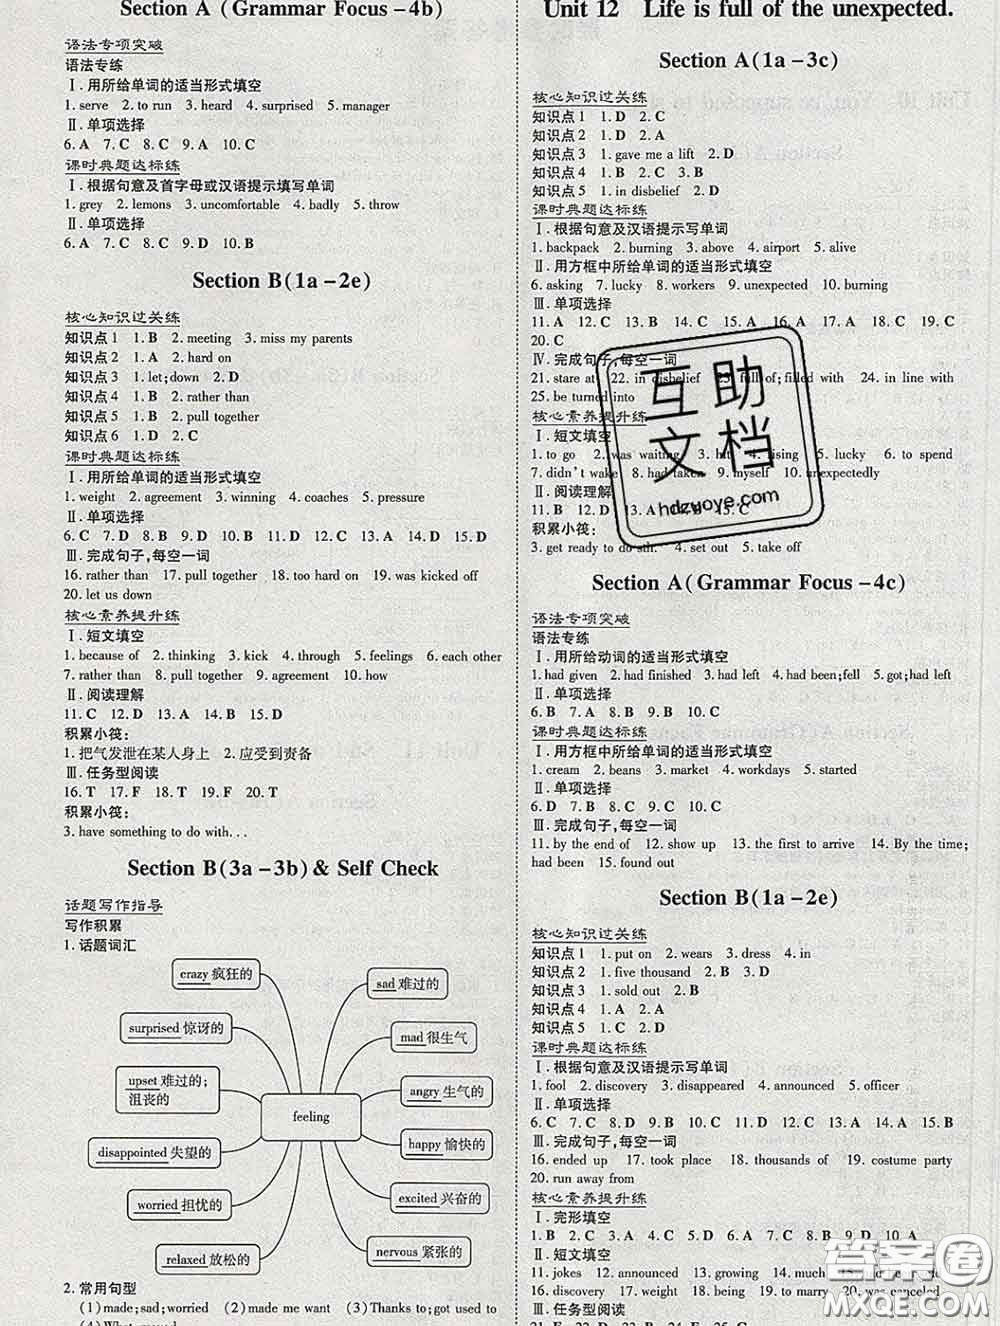 Section A (Grammar Focus－4b)
语法专项突破
语法专练
Ⅰ. 用所给单词的适当形式填空
1. serve 2. to run 3. heard 4. surprised 5. manager
Ⅱ. 单项选择
6. A 7. C 8. C 9. A 10. C
课时典题达标练
Ⅰ. 根据句意及首字母或汉语提示填写单词
1. grey 2. lemons 3. uncomfortable 4. badly 5. throw
Ⅱ. 单项选择
6. A 7. B 8. C 9. D 10. B
Section B(1a－2e)
核心知识过关练
知识点1 1. B 2. meeting 3. miss my parents
知识点2 1. A 2. hard on
知识点3 1. let;down 2. D
知识点4 1. B 2. rather than
知识点5 1. B 2. pull together
知识点6 1. D 2. C
课时典题达标练
Ⅰ. 用所给单词的适当形式填空
1. weight 2. agreement 3. winning 4. coaches 5. pressure
Ⅱ. 单项选择
6. C 7. D 8. C 9. B 10. D 11. B 12. C 13. A 14. D 15. D
Ⅲ. 完成句子,每空一词
16. rather than 17. pull together 18. too hard on 19. was kicked off
20. let us down
核心素养提升练
Ⅰ. 短文填空
1. because of 2. thinking 3. kick 4. through 5. feelings 6. each other
7. rather than 8. pull together 9. agreement 10. how
Ⅱ. 阅读理解
11. C 12. D 13. A 14. B 15. D
积累小筏:
1. 把气发泄在某人身上 2. 应受到责备
Ⅲ. 任务型阅读
16. T 17. F 18. T 19. F 20. T
积累小筏:
3. have something to do with...
Section B(3a－3b) & Self Check
话题写作指导
写作积累
1. 话题词汇
crazy 疯狂的
surprised 惊讶的
upset 难过的;
沮丧的
disappointed 失望的
worried 担忧的
relaxed 放松的
feeling
sad 难过的
mad 很生气
angry 生气的
happy 愉快的
excited 兴奋的
nervous 紧张的
2. 常用句型
(1)made;sad;worried (2)made me want (3)Thanks to;got used to
Unit 12 Life is full of the unexpected.
Section A(1a－3c)
核心知识过关练
知识点1 1. D 2. C
知识点2 1. D 2. A
知识点3 1. gave me a lift 2. D
知识点4 1. B 2. C 3. B
知识点5 1. in disbelief 2. D
课时典题达标练
Ⅰ. 根据句意及汉语提示写单词
1. backpack 2. burning 3. above 4. airport 5. alive
Ⅱ. 用方框中所给单词的适当形式填空
6. asking 7. lucky 8. workers 9. unexpected 10. burning
Ⅲ. 单项选择
11. A 12. C 13. B 14. C 15. A 16. A 17. A 18. C 19. C
20. C
Ⅳ. 完成句子,每空一词
21. stare at 22. in disbelief 23. full of;filled with 24. in line with
25. be turned into
核心素养提升练
Ⅰ. 短文填空
1. to go 2. was waiting 3. hit 4. rising 5. lucky 6. to spend
7. didn't wake 8. had taken 9. myself 10. unexpectedly
Ⅱ. 阅读理解
11. B 12. D 13. A 14. B 15. C
积累小筏:
3. get ready to do sth. 4. set out 5. take off
互助
文档
hdzuoye.com
Section A(Grammar Focus－4c)
语法专项突破
语法专练
Ⅰ. 用所给动词的适当形式填空
1. had given 2. had finished 3. had left 4. had been;fell 5. got;had left
Ⅱ. 单项选择
6. B 7. A 8. B 9. B 10. C
课时典题达标练
Ⅰ. 用方框中所给单词的适当形式填空
1. cream 2. beans 3. market 4. workdays 5. started
Ⅱ. 单项选择
6. D 7. B 8. C 9. C 10. A
Ⅲ. 完成句子,每空一词
11. by the end of 12. show up 13. the first to arrive 14. By the time;
had been 15. found out
Section B(1a－2e)
核心知识过关练
知识点1 1. put on 2. wears 3. dress 4. in
知识点2 1. five thousand 2. B 3. D
知识点3 1. sold out 2. B
知识点4 1. A 2. A
知识点5 1. C 2. D
课时典题达标练
Ⅰ. 根据句意及汉语提示写单词
1. fool 2. discovery 3. disappeared 4. announced 5. officer
Ⅱ. 单项选择
6. D 7. C 8. D 9. B 10. C 11. D 12. D 13. C 14. A 15. B
Ⅲ. 完成句子,每空一词
16. ended up 17. took place 18. thousands of 19. costume party
20. run away from
核心素养提升练
Ⅰ. 完形填空
1. B 2. C 3. C 4. D 5. D 6. A 7. B 8. D 9. A 10. A
Ⅱ. 短文填空
11. jokes 12. announced 13. growing 14. much
16. discovery 17. weight 18. being 19. to marry 20. was canceled
Ⅲ. 任务型阅读
答案圈
MXQE.COM